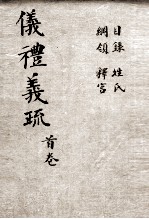 目錄 姓氏
綱領 釋宮
儀禮義疏
首卷